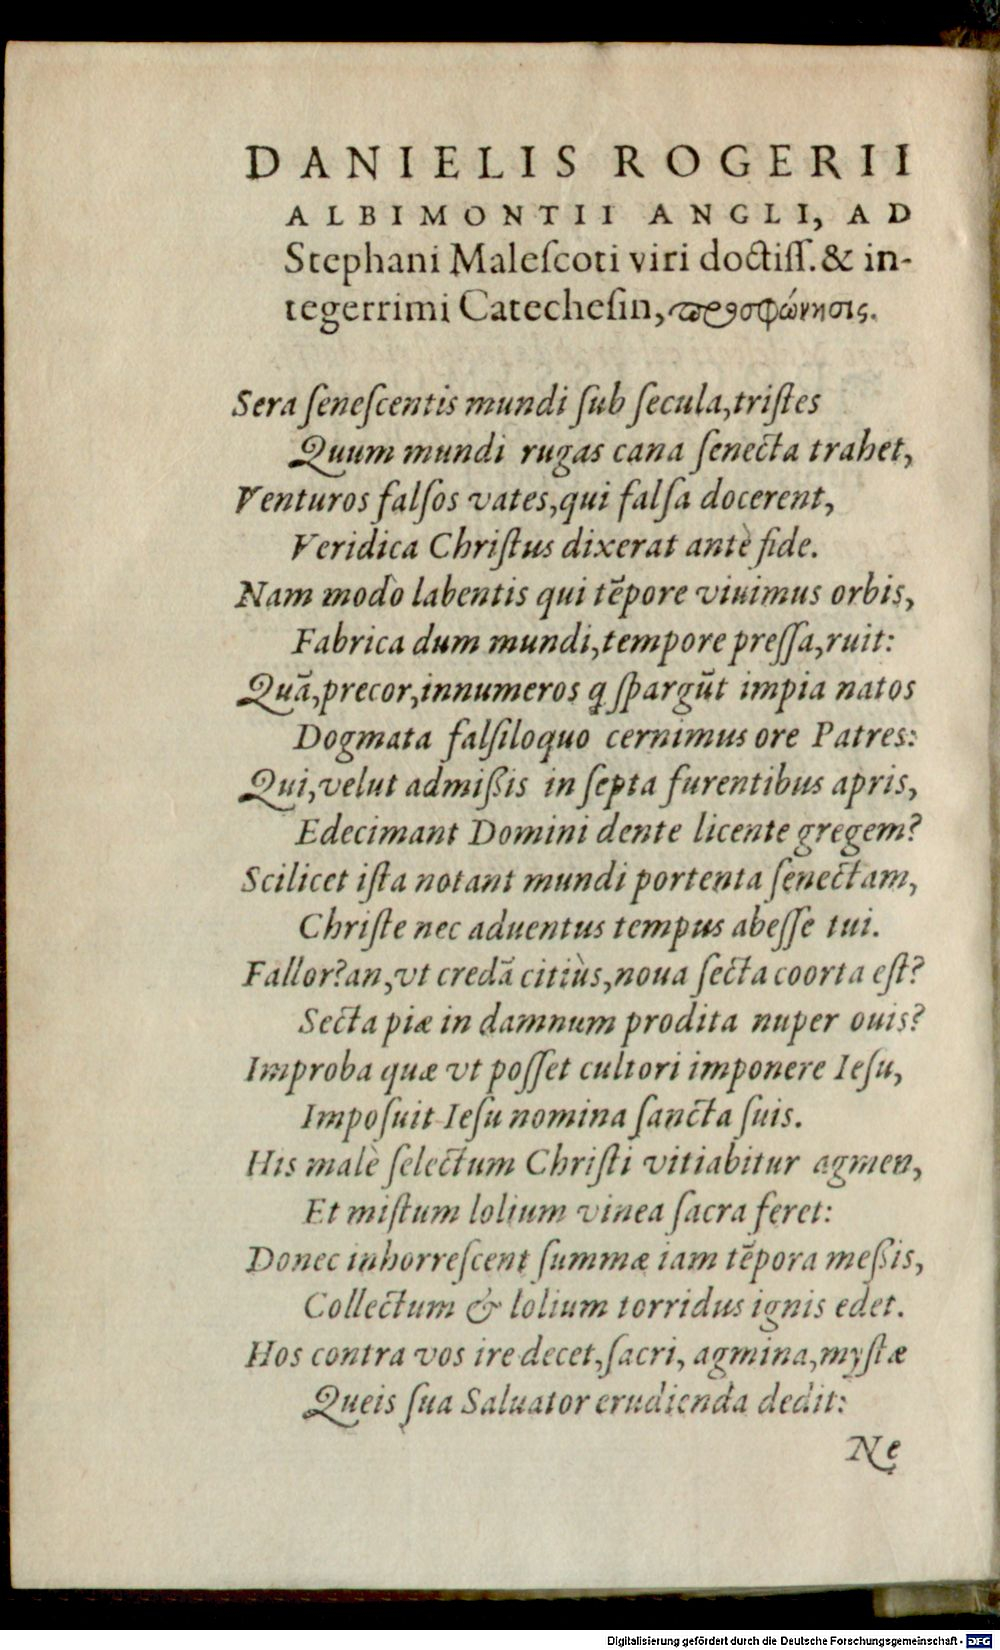 DANIELIS ROGERII
ALBIMONTII ANGLI, AD
Stephani Maleſcoti viri doctiſſ. & in-
tegerrimi Catecheſin, προσφώνησις.
Sera ſeneſcentis mundi ſub ſecula, triſtes
Quum mundi rugas cana ſenecta trahet,
Venturos falſos vates, qui falſa docerent,
Veridica Chriſtus dixerat antè fide.
Nam modò labentis qui tēpore viuimus orbis,
Fabrica dum mundi, tempore preſſa, ruit:
Quā, precor, innumeros q ſpargūt impia natos
Dogmata falſiloquo cernimus ore Patres:
Qui, velut admiſsis in ſepta furentibus apris,
Edecimant Domini dente licente gregem?
Scilicet iſta notant mundi portenta ſenectam,
Chriſte nec aduentus tempus abeſſe tui.
Fallor? an, vt credā citiùs, noua ſecta coorta eſt?
Secta piæ in damnum prodita nuper ouis?
Improba quæ vt poſſet cultori imponere Ieſu,
Impoſuit Ieſu nomina ſancta ſuis.
His malè ſelectum Chriſti vitiabitur agmen,
Et miſtum lolium vinea ſacra feret:
Donec inhorreſcent ſummæ iam tēpora meſsis,
Collectum & lolium torridus ignis edet.
Hos contra vos ire decet, ſacri, agmina, myſtæ
Queis ſua Saluator erudienda dedit:
Ne
Digitalisierung gefördert durch die Deutsche Forschungsgemeinschaft - DFG